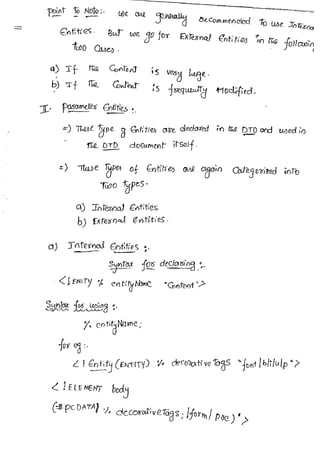 Point to Note:- we are generally Recommended to use Internal
Entities. But we go for External Entities in the following
two Cases.
a) If the Content is very large.
b) If the Content is frequently Modified.
II. Parameter Entities:
=) These type of Entities are declared in the DTD and used in
the DTD document itself.
=) These types of Entities are again Categorized into
Two types.
a) Internal Entities
b) External entities.
a) Internal Entities :-
Syntax for declaring :-
<!ENTITY % entityName "Content">
Syntax for using :-
% entityName;
for eg:-
<! Entity (ENTITY) % decorative Tags "font|b|i|u|p">
<!ELEMENT body
(#PCDATA| % decorativeTags; |form| pae)*>